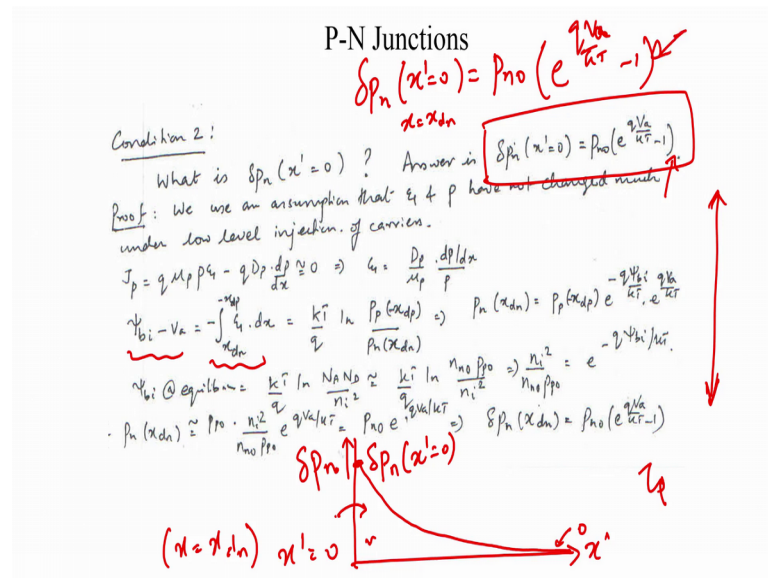 P-N Junctions
δpₙ (x'=0) = pₙ₀ (e^(qVa/kT) -1)
x=x_dn
Condition 2:
What is δpₙ (x'=0) ? Answer is δpₙ (x'=0) = pₙ₀(e^(qVa/kT)-1).
Proof: We use an assumption that ξ & p have not changed much
under low level injection. of carriers.
Jp = q μp p ξ - q Dp. dp/dx ≅ 0 ⇒ ξ = Dp/μp . (dp/dx)/p
Ψbi - Va = -∫_{x_dn}^{-x_dp} ξ. dx = kT/q ln Pp(-x_dp)/Pn(x_dn) ⇒ Pn(x_dn) = Pp(-x_dp) e^(-qΨbi/kT). e^(qVa/kT)
Ψbi @ equilbm = kT/q ln N_A N_D/nᵢ² ≅ kT/q ln nₙ₀ pₚ₀/nᵢ² ⇒ nᵢ²/(nₙ₀ pₚ₀) = e^(-qΨbi/kT).
. Pn(x_dn) ≅ pₚ₀ . nᵢ²/(nₙ₀ pₚ₀) e^(qVa/kT) = pₙ₀ e^(qVa/kT) ⇒ δpₙ(x_dn) = pₙ₀(e^(qVa/kT)-1)
δpₙ δpₙ(x'=0)
τp
(x=x_dn) x'=0 0 x'